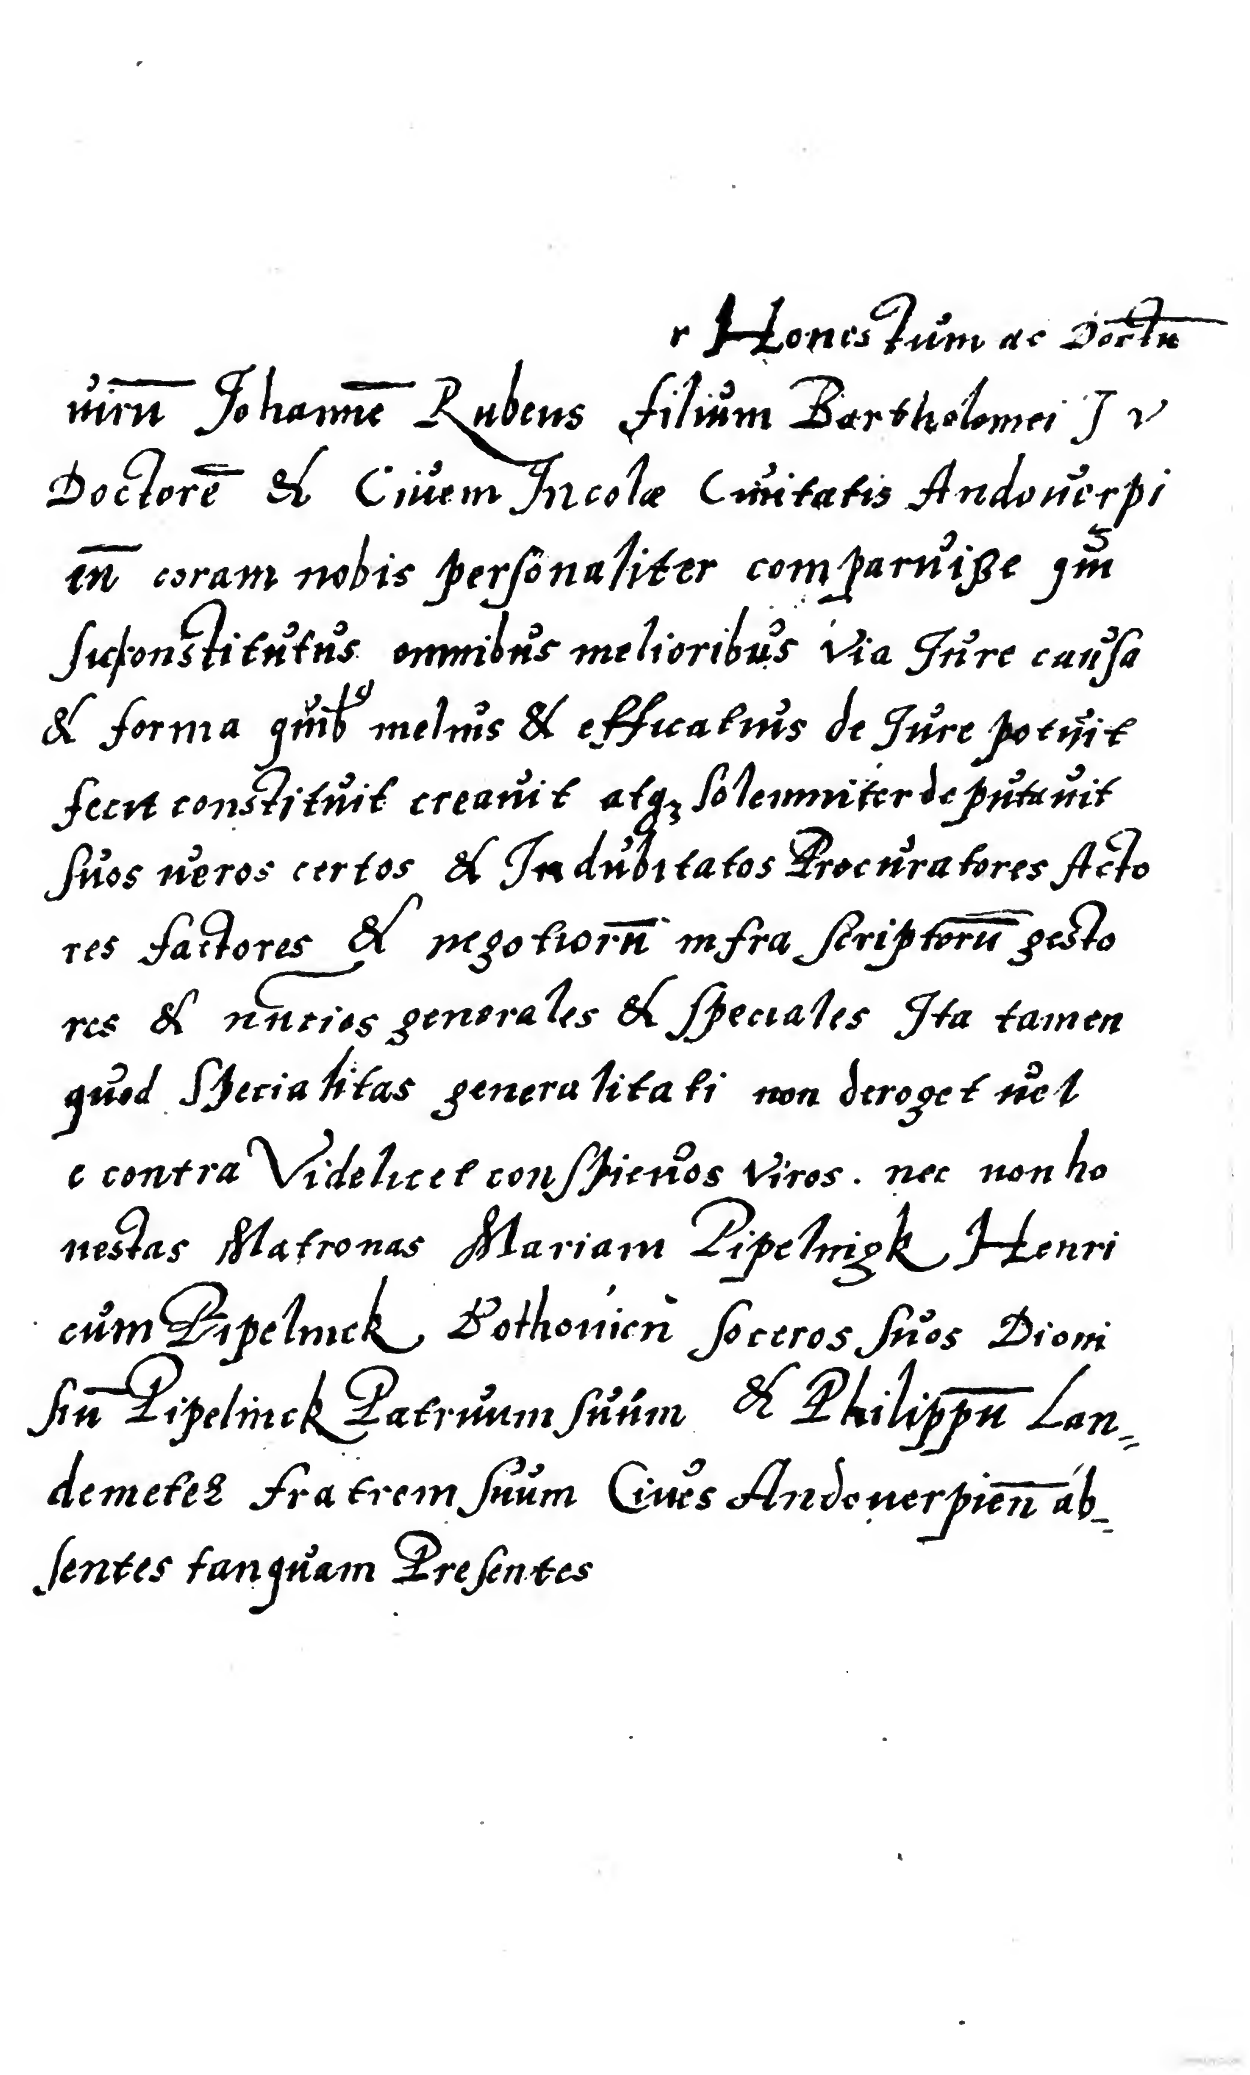 r Honestum ac Doctū
uirū Johannē Rubens filium Bartholomei J V
Doctorē & Ciuem Incolæ Ciuitatis Andouerpi
en̄ coram nobis personaliter comparuiße
constitutus omnibus melioribus via Jure causa
& forma quib9 melius & efficatius de Jure potuit
fecit constituit creauit atqꝫ solemniter deputauit
suos ueros certos & Indubitatos Procuratores Acto
res factores & negotiorū infra scriptorū gesto
res & nūtios generales & speciales Ita tamen
quod specialitas generalitati non deroget uel
e contra Videlicet conspicuos viros . nec non ho
nestas Matronas Mariam Pipelnigk Henri
cum Pipelinck soceros suos Dioni
siū Pipelinck Patruum suum & Philippū Lan„
demetez fratrem suum Ciues Andouerpien̄ ab„
sentes tanquam Presentes